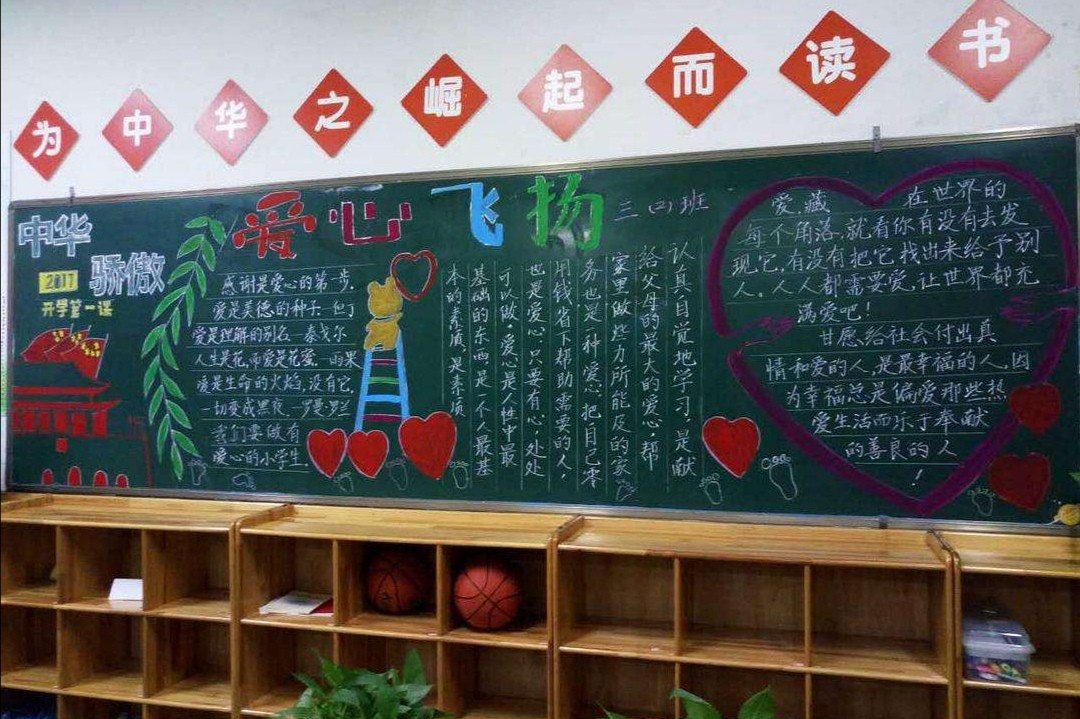 为中华之崛起而读书
中华
骄傲
2017
开学第一课
爱心飞扬
三(2)班
感谢是爱心的第一步,
爱是美德的种子.但丁
爱是理解的别名 泰戈尔
人生是花,而爱是花蜜. 雨果
爱是生命的火焰,没有它,
一切变成黑夜 罗曼·罗兰
我们要做有
爱心的小学生.
认真,自觉地学习,是献
给父母的最大的爱心,帮
家里做些力所能及的家
务也是一种爱心,把自己零
用钱省下帮助需要的人,
也是爱心,只要有心,处处
可以做。爱心是人性中最
基础的东西,是一个人最基
本的素质,是素项
爱,藏 在世界的
每个角落,就看你有没有去发
现它,有没有把它找出来给予别
人。人人都需要爱,让世界都充
满爱吧!
甘愿给社会付出真
情和爱的人,是最幸福的人,因
为幸福总是偏爱那些热
爱生活而乐于奉献
的善良的人
!